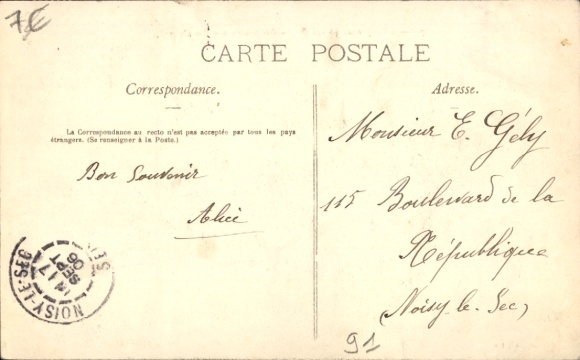 7€
CARTE POSTALE
Correspondance.
La Correspondance au recto n'est pas acceptée par tous les pays
étrangers. (Se renseigner à la Poste.)
Bon Souvenir
Alice
Adresse.
Monsieur E. Gély
115 Boulevard de la
République
(Noisy-le-Sec)
NOISY-LE-SEC
17
SEPT
06
91